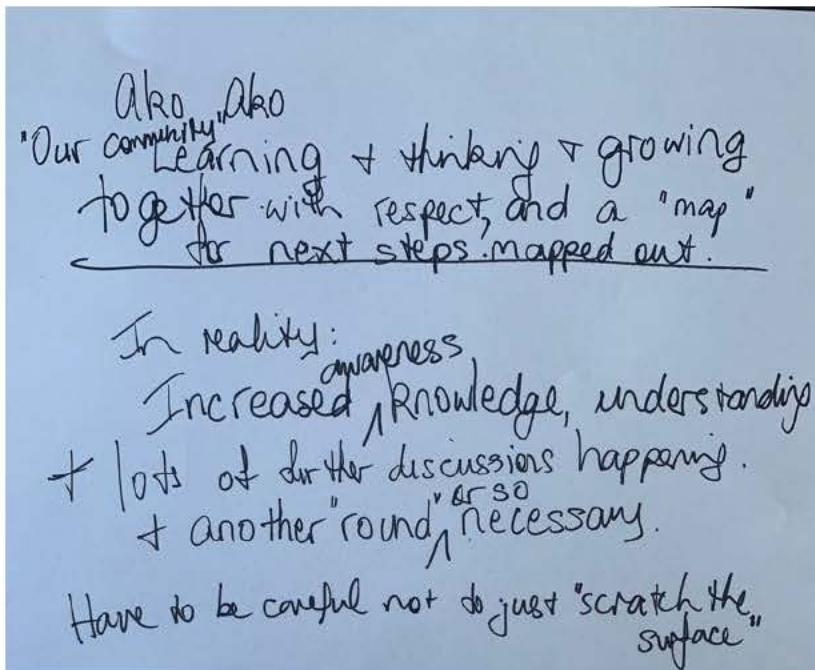 Ako Ako
"Our community"
Learning + thinking + growing
together with respect, and a "map"
for next steps mapped out.
In reality:
Increased awareness, knowledge, understanding
+ lots of further discussions happening.
+ another "round" or so necessary.
Have to be careful not to just "scratch the
surface"